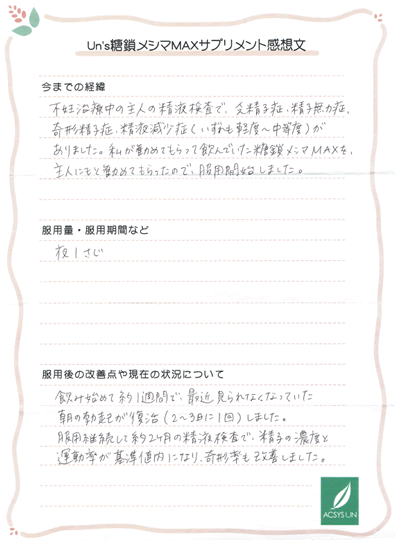 Un's糖鎖メシマMAXサプリメント感想文
今までの経緯
不妊治療中の主人の精液検査で、乏精子症、精子無力症、
奇形精子症、精液減少症(いずれも軽度〜中等度)が
ありました。私が勧めてもらって飲んでいた糖鎖メシマMAXを、
主人にもと勧めてもらったので、服用開始しました。
服用量・服用期間など
夜1さじ
服用後の改善点や現在の状況について
飲み始めて約1週間で、最近見られなくなっていた
朝の勃起が復活(2〜3日に1回)しました。
服用継続して約2ヶ月の精液検査で、精子の濃度と
運動率が基準値内になり、奇形率も改善しました。
ACSYS UN